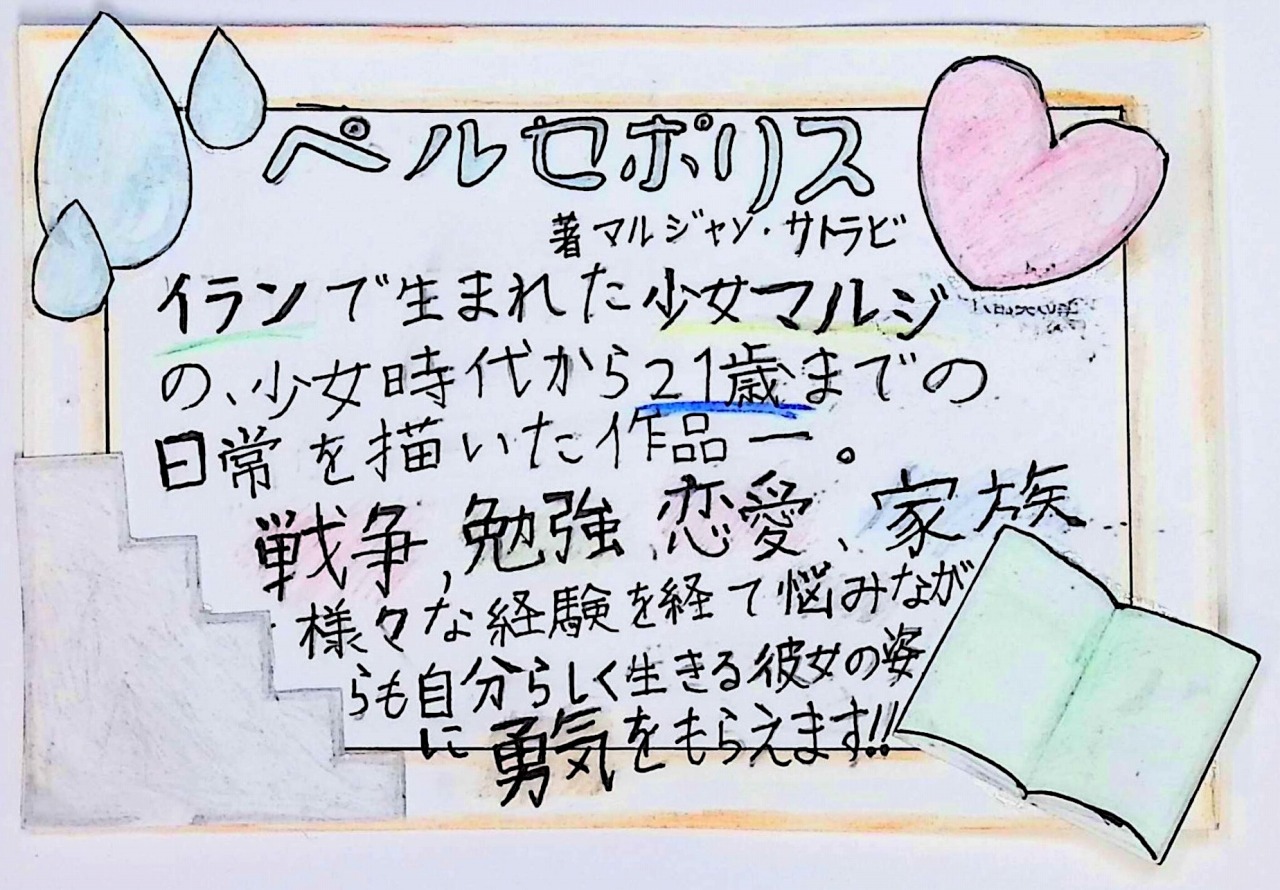 ペルセポリス
著マルジャン・サトラビ
イランで生まれた少女マルジ
の、少女時代から21歳までの
日常を描いた作品ー。
戦争,勉強、恋愛、家族、
様々な経験を経て悩みなが
らも自分らしく生きる彼女の姿
に勇気をもらえます!!